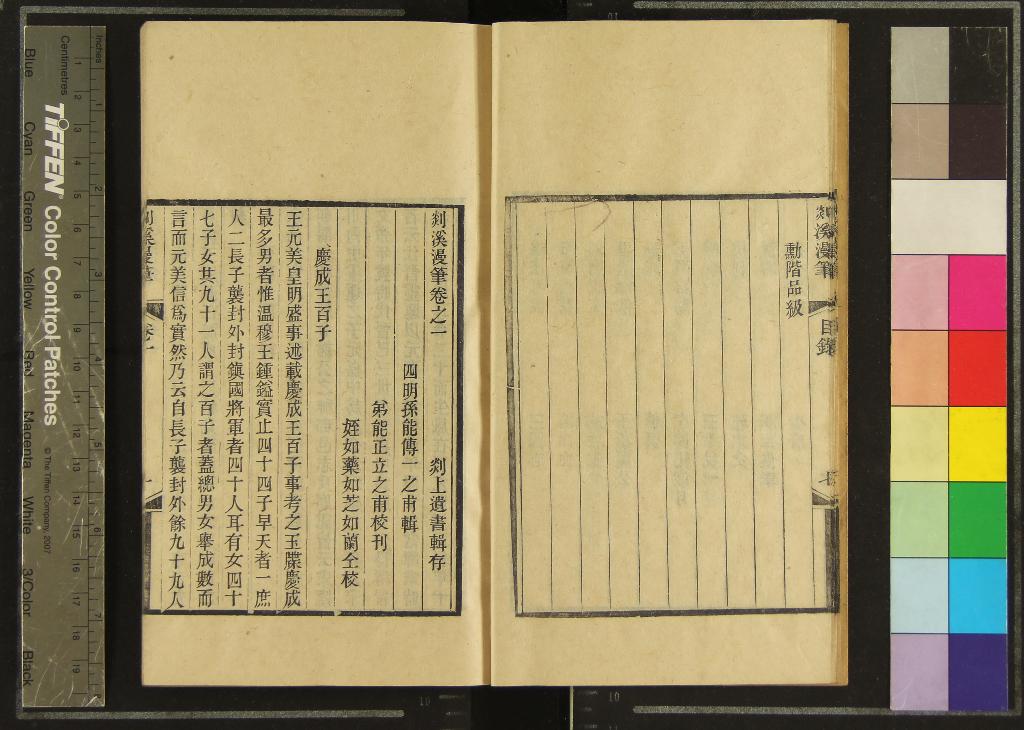 剡溪漫筆
目錄
七
勳階品級
剡溪漫筆卷之一
剡上遺書輯存
四明孫能傳一之甫輯
弟能正立之甫校刊
姪如藥如芝如蘭仝校
慶成王百子
王元美皇明盛事述載慶成王百子事考之玉牒慶成
最多男者惟溫穆王鍾鎰實止四十四子早夭者一庶
人二長子襲封外封鎮國將軍者四十人耳有女四十
七子女共九十一人謂之百子者蓋總男女舉成數而
言而元美信爲實然乃云自長子襲封外餘九十九人
剡溪漫筆
卷一
一
Inches
Centimetres
TIFFEN Color Control Patches
© The Tiffen Company, 2007
Blue Cyan Green Yellow Red Magenta White 3/Color Black